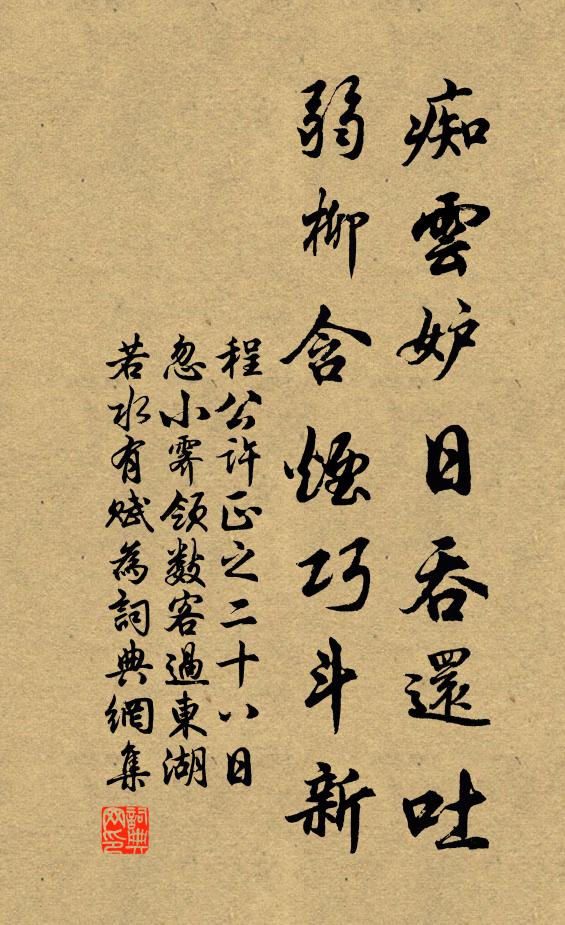 痴雲妒日吞還吐
弱柳含煙巧斗新
程公許正之二十八日
忽小霽領數客過東湖
若水有賦為詞典網集
詞典網印